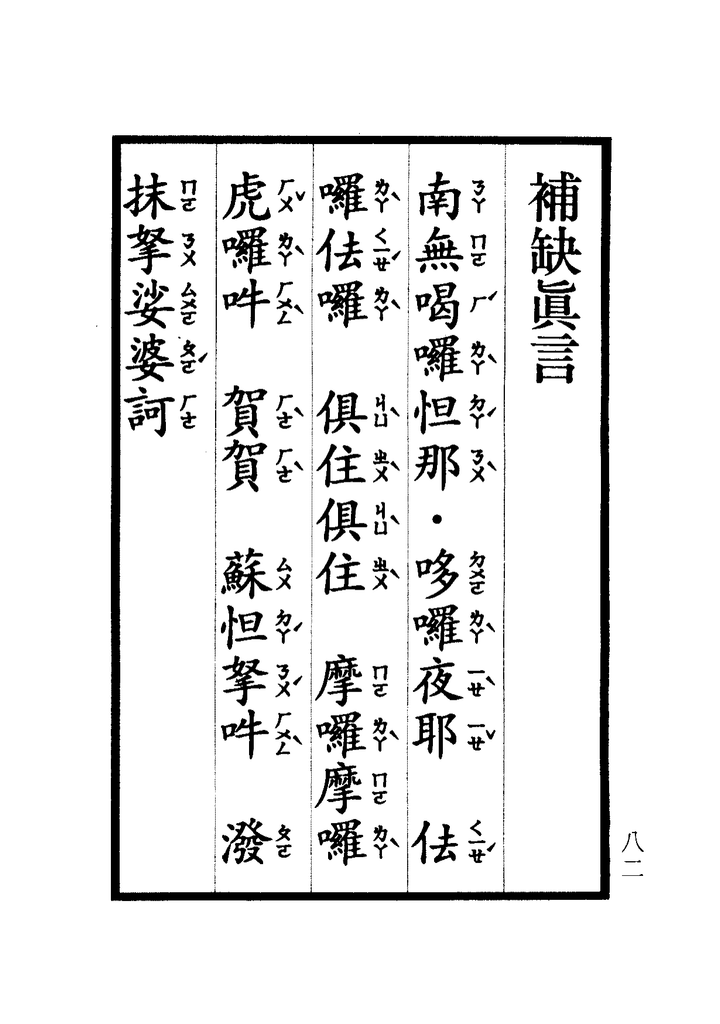 補缺眞言
南無喝囉怛那·哆囉夜耶 佉
囉佉囉 俱住俱住 摩囉摩囉
虎囉吽 賀賀 蘇怛拏吽 潑
抹拏娑婆訶
八二